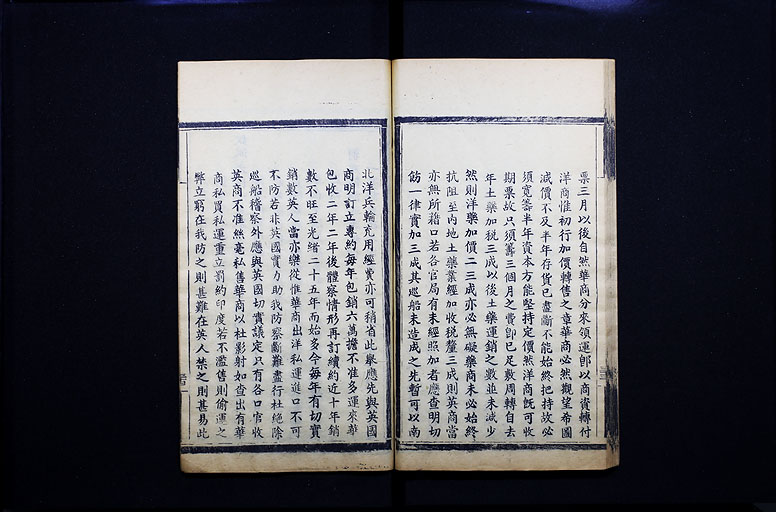 票三月以後自然華商分來領運卽以商資轉付
洋商惟初行加價轉售之章華商必然觀望希圖
減價不及半年存貨已盡斷不能始終把持故必
須寬籌半年資本方能堅持定價然洋商旣可收
期票故只須籌三個月之費卽已足敷周轉自去
年土藥加稅三成以後土藥運銷之數並未減少
然則洋藥加價二三成亦必無礙藥商未必始終
抗阻至內地土藥業經加收稅釐三成則英商當
亦無所藉口若各官局有未經照加者應查明切
飭一律實加三成其巡船未造成之先暫可以南
北洋兵輪充用經費亦可稍省此擧應先與英國
商明訂立專約每年包銷六萬擔不准多運來華
包收二年二年後體察情形再訂續約近十年銷
數不旺至光緖二十五年而始多今每年有切實
銷數英人當亦樂從惟華商出洋私運進口不可
不防若非英國實力助我防察斷難盡行杜絕除
巡船稽察外應與英國切實議定只有各口官收
英商不准絲毫私售華商以杜影射如查出有華
商私買私運重立罰約印度若不濫售則偷運之
弊立窮在我防之則甚難在英人禁之則甚易此